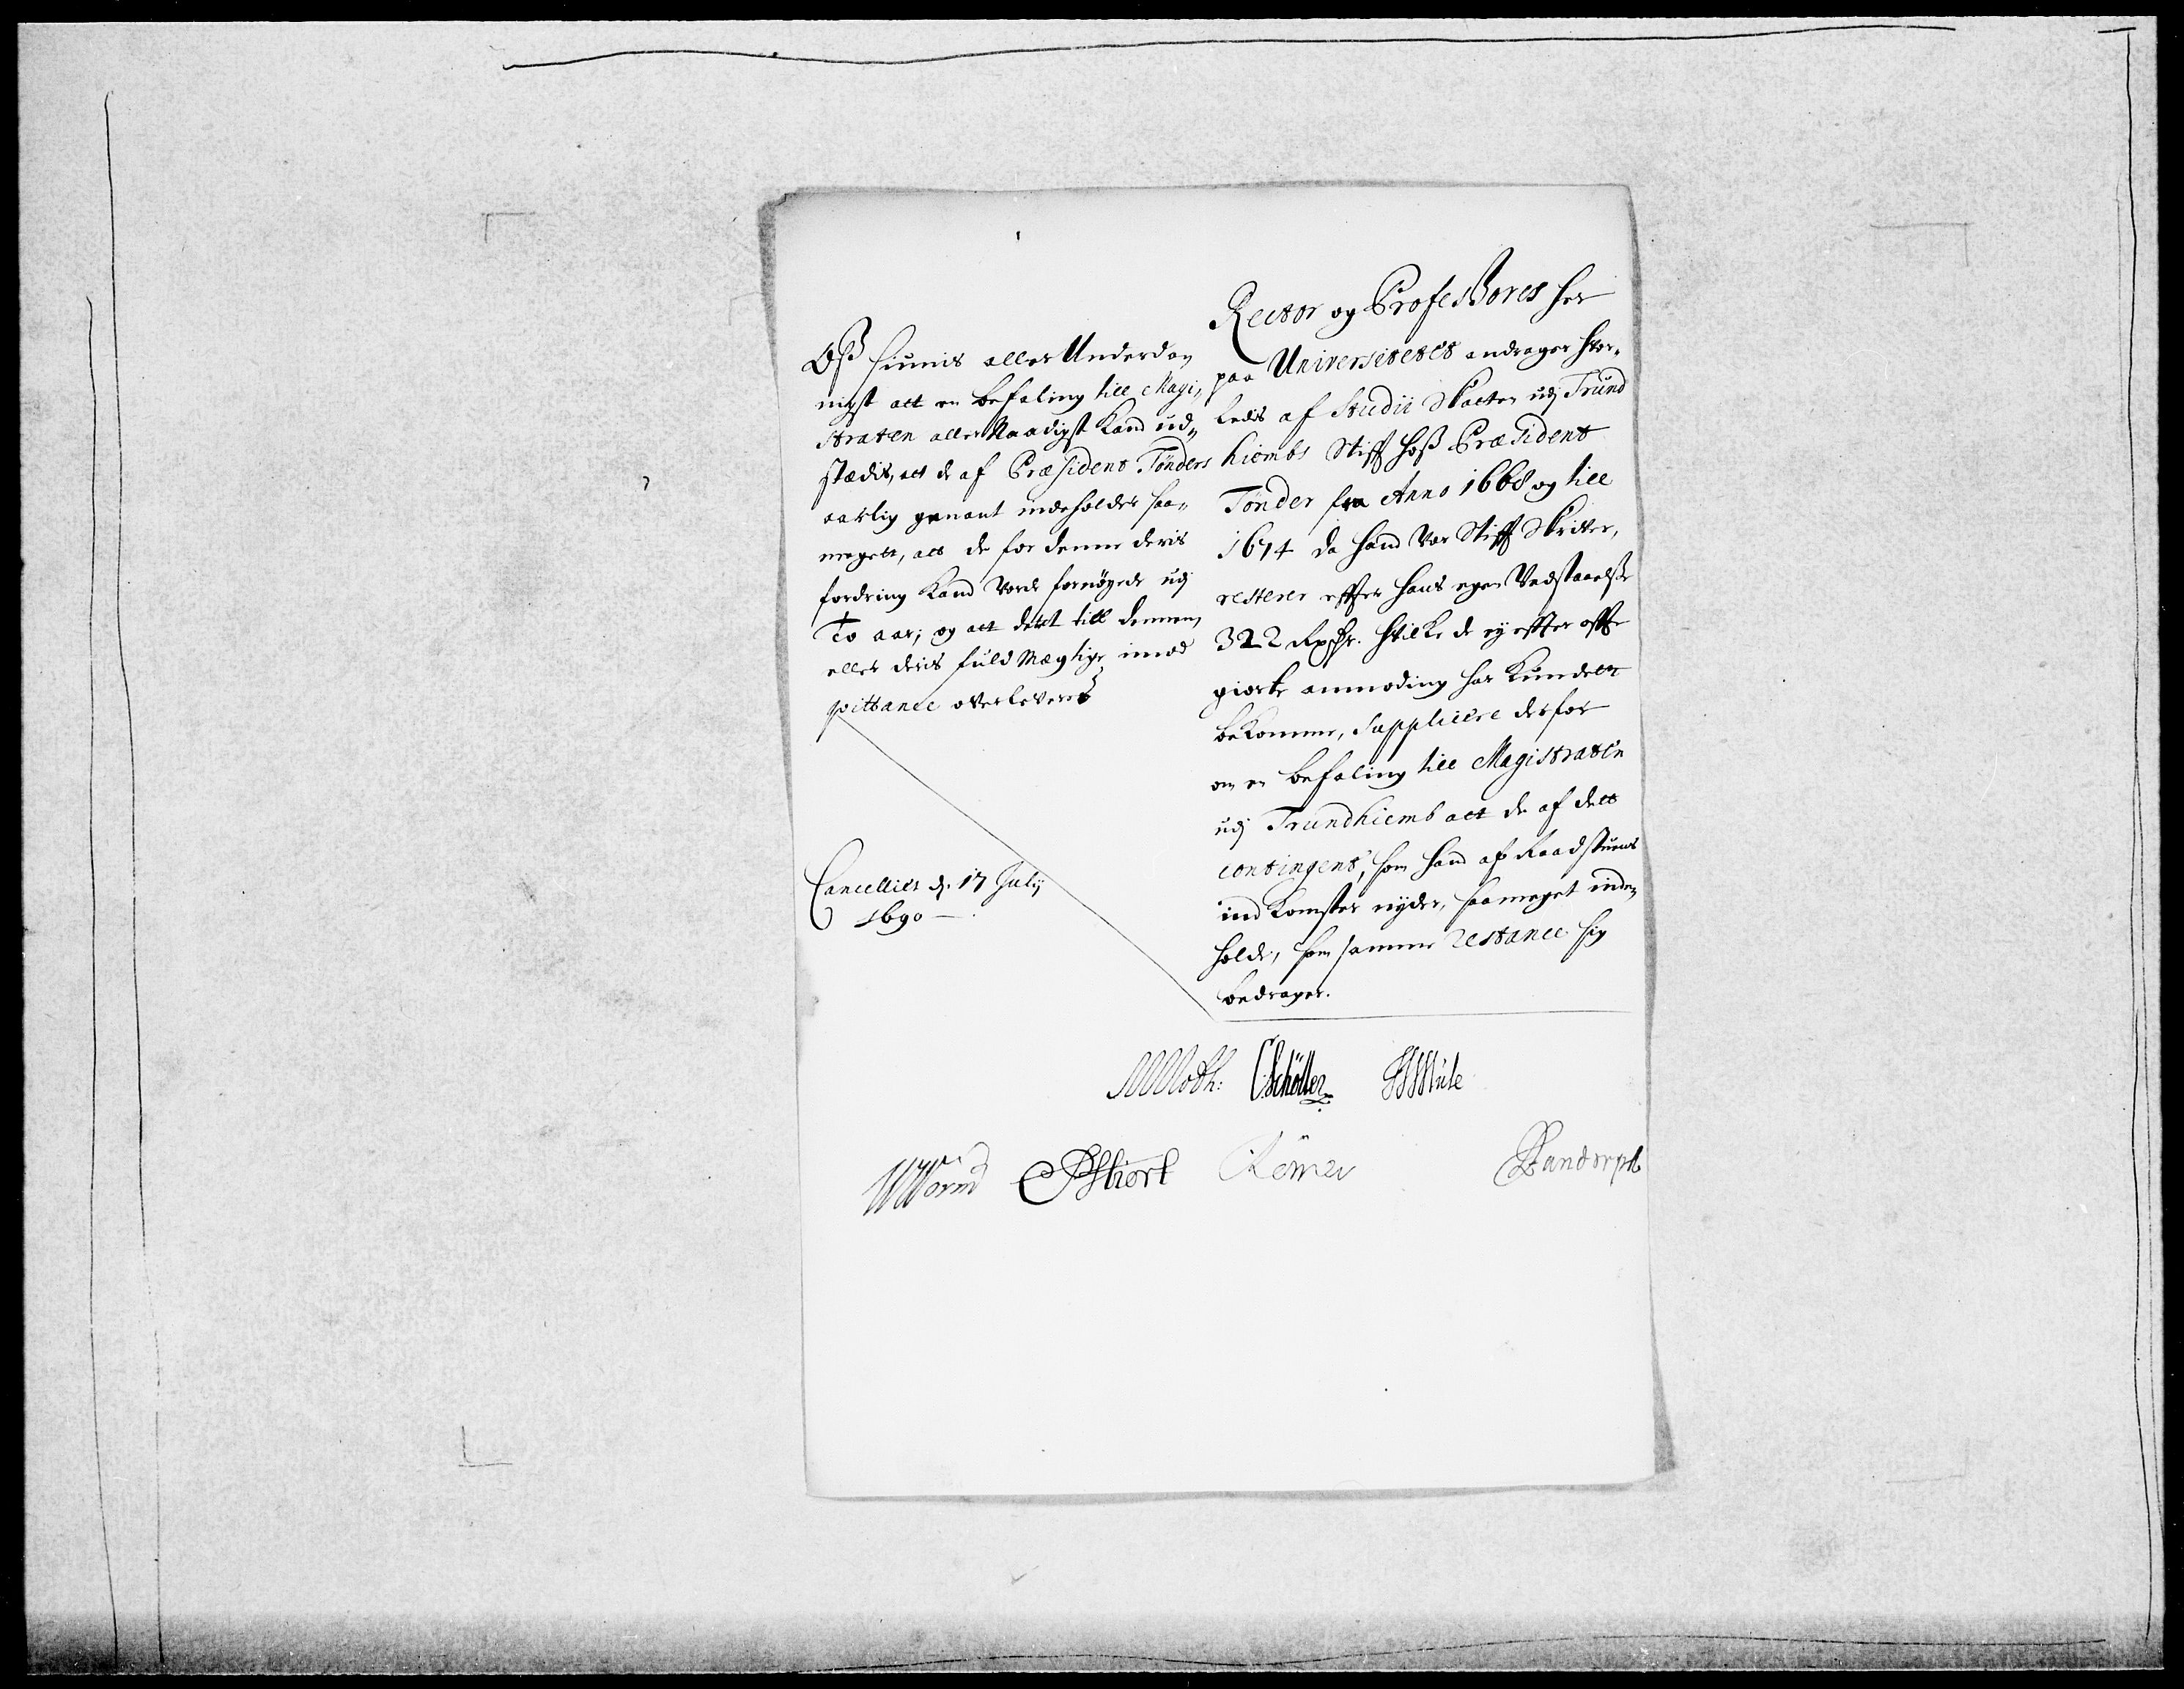 Rector og Professores her
paa Universitetet andrager hvor„
ledis af Studii Skatten udj Trund
hiembs Stifft hoß Præsident
Tønder fra Anno 1668 og till
1674 da hand var Stifft Skriver,
resterer effter hans egen Vedstaaelse
322 Rixdr. hvilke de ey effter offte
giorte anmoding har kundet
bekomme, Supplicere derfor
om en befaling till Magistraten
udj Trundhiemb att de af dett
contingent, som hand af Raadstuens
ind komster nyder, saa meget inde„
holde, som samme restance sig
bedrager.
Oss siunis aller Underdan
nigst att en befaling till Magi„
straten aller Naadigst kand ud„
stædis, att de af Præsident Tønders
aarlig genant indeholder saa„
megett, att de for denne deris
fordring kand vorde fornøyede udj
To aar; og att dett till dennem,
eller deris fuld Mægtige imod
qvittance overleveres
Cancelliet d. 17 Julij
1690 —
MMoth: CSchöller HMule
WWorm PSkiort Römer PVandorph